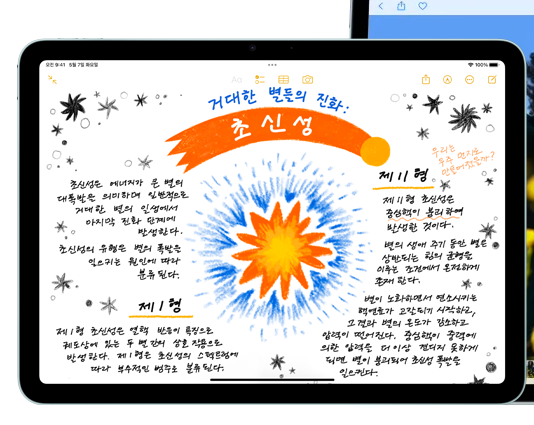 오전 9:41 5월 7일 화요일
100%
Aa
거대한 별들의 진화:
초신성
우리는
우주 먼지로
만들어졌을까?
초신성은 에너지가 큰 별의
대폭발을 의미하며 일반적으로
거대한 별의 일생에서
마지막 진화 단계에
발생한다.
초신성의 유형은 별의 폭발을
일으키는 원인에 따라
분류된다.
제 I 형
제 I 형 초신성은 열핵 반응이 특징으로
궤도상에 있는 두 별 간의 상호 작용으로
발생한다. 제 I 형은 초신성의 스펙트럼에
따라 부수적인 범주로 분류된다.
제 II 형
제 II 형 초신성은
중심핵이 붕괴하여
발생한 것이다.
별의 생애 주기 동안 별은
상반되는 힘의 균형을
이루는 조건에서 온전하게
존재한다.
별이 노화하면서 연소시키는
핵연료가 고갈되기 시작하고,
그 결과 별의 온도가 감소하고
압력이 떨어진다. 중심핵이 중력에
의한 압력을 더 이상 견디지 못하게
되면, 별이 붕괴되어 초신성 폭발을
일으킨다.